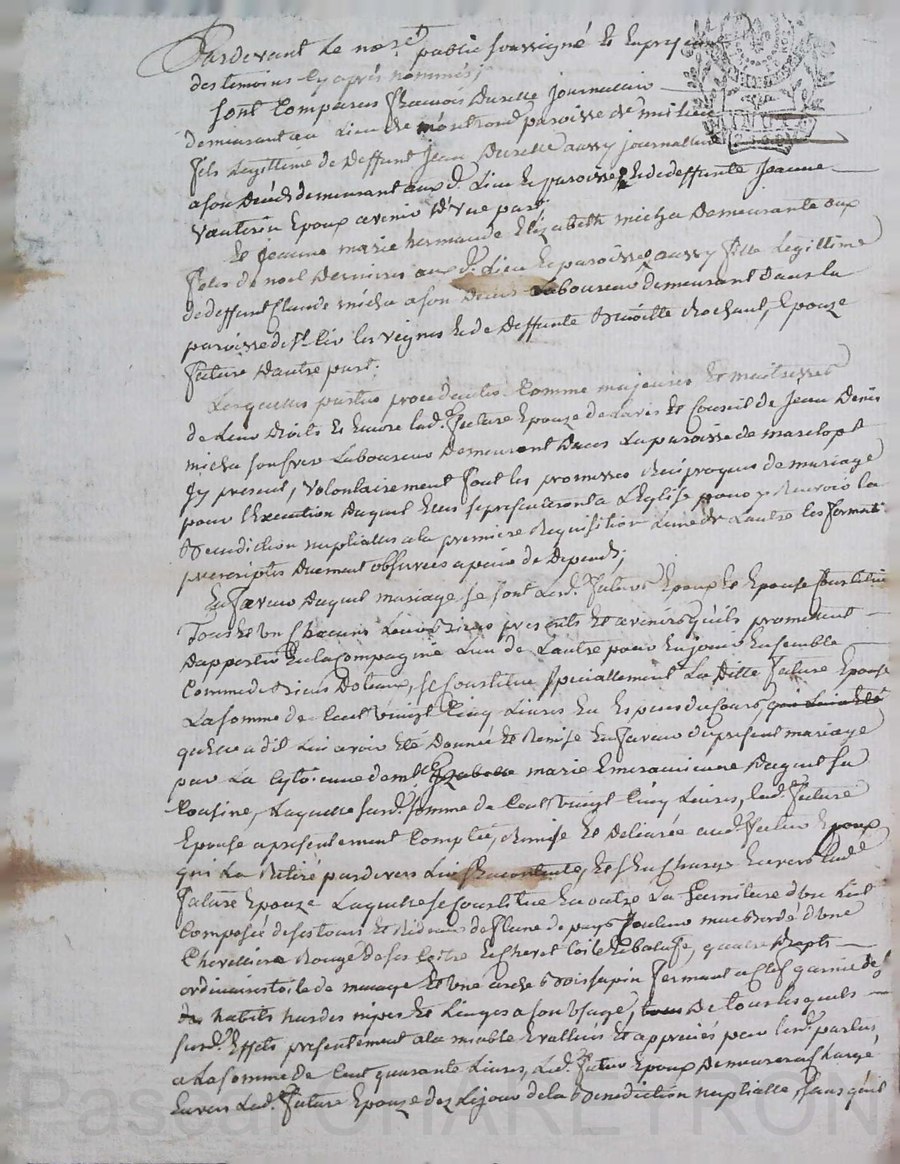 Pardevant le no.re public soussigné et en presence
des temoins cy après nommés;
sont comparus françois Durelle journallier
demeurant au lieu de montrond paroisse de
fils legittime de deffunt Jean Durelle aussy journallier
a son décès demeurant aux d. lieu et paroisse, et de deffunte Jeanne
Epoux avenir d'une part
Et jeanne marie Elizabeth micha demeurante aux
de noel dernier aux d. lieu et paroisse, aussy fille legittime
de deffunt Claude micha a son deces laboureur demeurant dans la
paroisse de st. les vignes et de deffunte Benoitte Rochant, Epouze
future d'autre part.
Lesquelles parties procedantes comme majeures et maitresses
de leur droits et encore lad. future Epouze de l'avis et conseil de Jean Denis
micha son frere laboureur demeurant dans la paroisse de marclopt
jy present, volontairement font les promesses reciproques de mariage
pour l'execution duquel elles se presenteront a l'Eglise pour y recevoir la
Benediction nuptialle a la premiere requisition l'une de l'autre les formalités
prescriptes duement observées a peine de depends;
En faveur duquel mariage se sont lesd. futurs Epoux et Epouse constitué
tous et un chacuns leurs biens presents et avenirs qu'ils promettent
d'apporter en la compagnie l'un de l'autre pour en jouir ensemble
comme de biens dotaux, se constitue specialement la ditte future Epouse
la somme de cent vingt cinq livres en especes du cours, qui lui a eté
qu'elle a dit lui avoir eté donnée et remise en faveur du present mariage
par la cytoienne marie Emerancienne Duguet sa
cousine, laquelle susd. somme de cent vingt cinq livres, lad. future
Epouse a presentement comptée, remise et delivrée aud. futur Epoux
qui l'a retiré pardevers lui s'en contente, et s'en charge envers lad.
future Epouze. Laquelle se constitue en outre la fourniture d'un lict
composée de ses tours et rideaux de flene de pays bordé d'une
Chevilliere rouge de ses coitre et chevet toile et balufe, quatre drapts
ordinaires toile de menage et une arche bois sapin fermant a clef garnie de ses
habits hardes nipes et linges a son usage, de tous lesquels
susd. Effets presentement a la miable evallués et appreciés par lesd. parties
a la somme de cent quarante livres, led. futur Epoux demeurera chargé
envers lad. future Epouze dez le jour de la Benediction nuptialle, sans qu'il
Pascal CHAREYRON